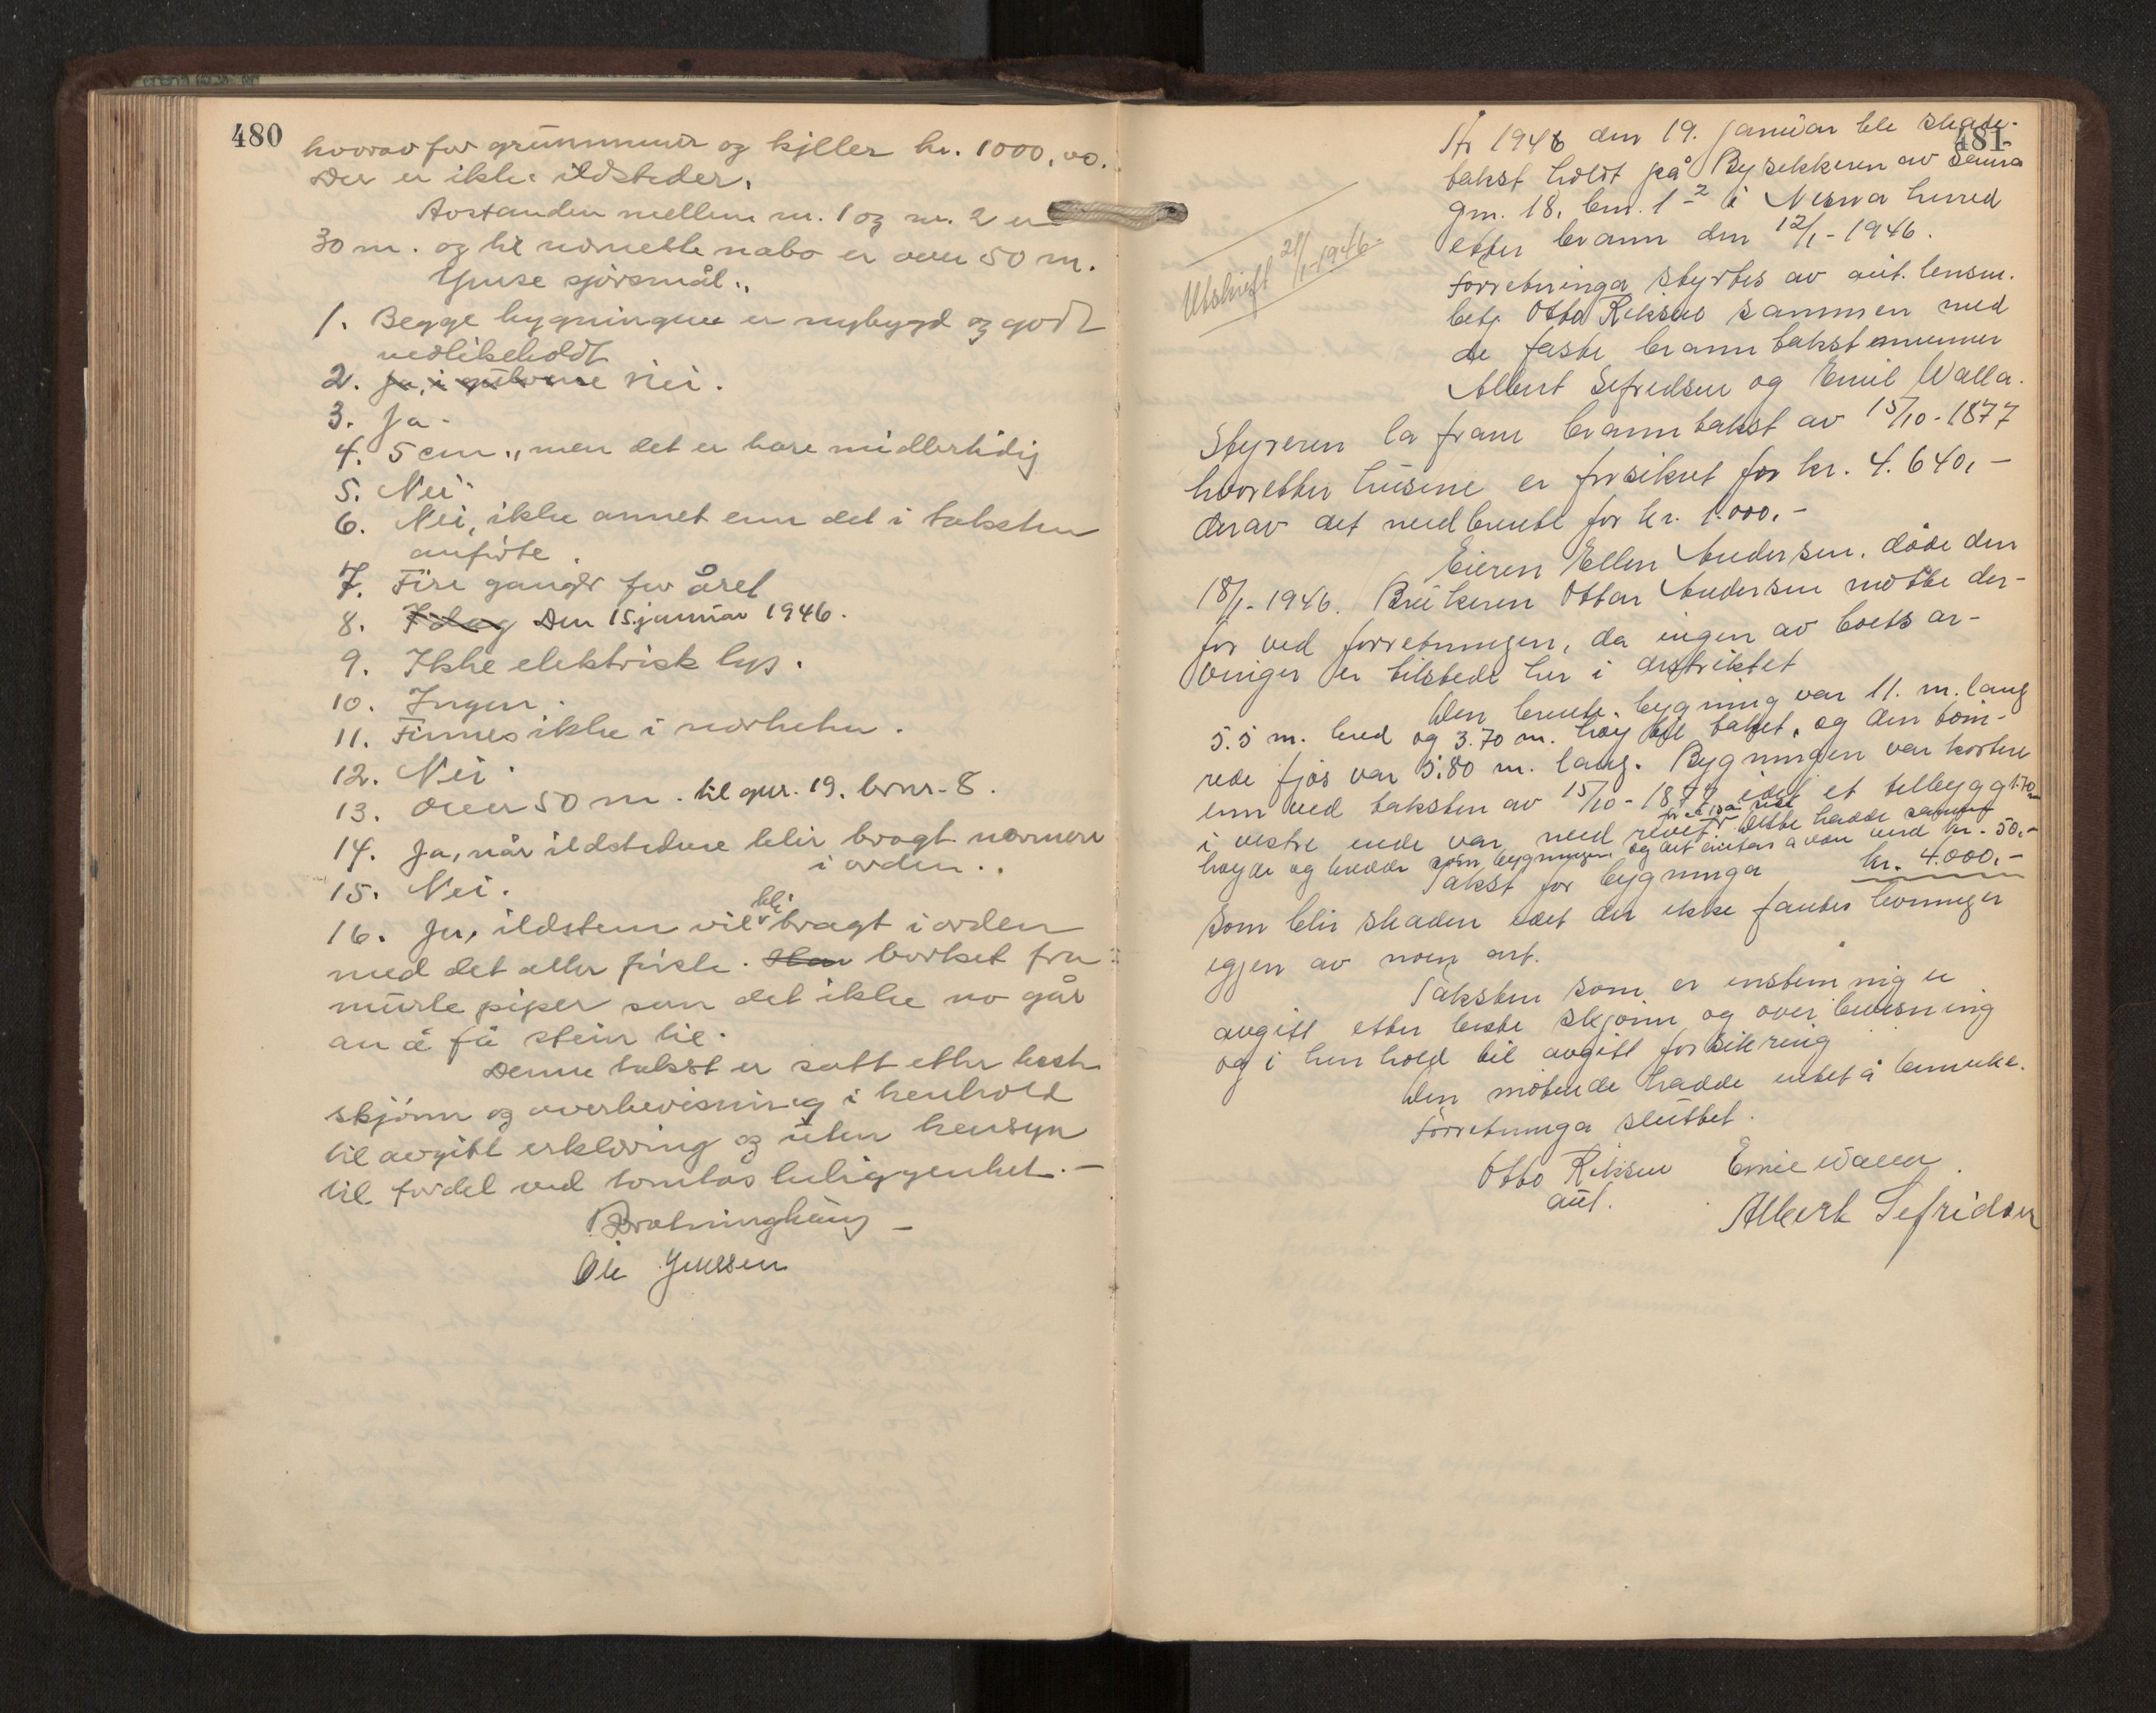 480
hvorav for grunnmur og kjeller kr. 1000,00.
Der er ikke ildsteder.
Avstanden mellem nr. 1 og nr. 2 er
30 m. og til nærmeste nabo er over 50 m.
Ymse spörsmål..
1. Begge bygningene er nybygd og godt
vedlikeholdt
2. Ja, i Nei.
3. Ja.
4. 5 cm., men det er bare midlertidig
5. Nei
6. Nei, ikke annet enn det i taksten
anförte.
7. Fire ganger for året
8. I dag Den 15. januar 1946.
9. Ikke elektrisk lys.
10. Ingen.
11. Finnes ikke i nærheten.
12. Nei.
13. Over 50 m. til gnr. 19. brnr. 8.
14. Ja, når ildstedene blir bragt nærmere
i orden..
15. Nei.
16. Ja, ildstem vil bli bragt i orden
med det aller förste. bortset fra
murte piper som det ikke no går
an å få stein til.
Denne takst er satt etter beste
skjönn og overbevisning i henhold
til avgitt erklæring og uten hensyn
til fordel ved tomtas beliggenhet.-
Ole Jenssen
481
Utskrift 21/1-1946.
År 1946 den 19. januar ble skade-
takst holdt på Bysekkeren av sama
gnr. 18, bnr. 1-2 i Nesna herred
etter brann den 12/1-1946.
Forretninga styrtes av aut. lensm.
betj. Otto Reksen sammen med
de faste branntakstmenner
Albert Sefredsen og Emil Walla.
Styreren la fram branntakst av 15/10-1877
hvoretter husene er forsikret for kr. 4.640,-
derav det nedbrente for kr. 1.000.-
Eieren Ellen Andersen. döde den
18/1-1946. Brukeren Ottar Andersen mötte der-
for ved forretningen, da ingen av boets ar-
vinger er tilstede her i distriktet
Den brente bygning var 11. m. lang
5.5 m. bred og 3.70 m. höy til taket, og den töm-
rede fjös var 5.80 m. lang. Bygningen var kortere
enn ved taksten av 15/10-1877 idet et tilbygg 1.70 m
i vestre ende var ned revet. Dette hadde samme
höyde og bredde som bygningen og det antas å være verd kr. 50.-
Takst for bygninga kr. 4.000.-
som blir skaden idet der ikke fantes levninger
igjen av noen art.
Taksten som er enstemmig er
avgitt etter beste skjönn og overbevisning
og i henhold til avgitt forsikring
Den mötende hadde intet å bemerke.
Forretninga sluttet.
Otto Reksen Emil Walla
aut.
Albert Sefridsen